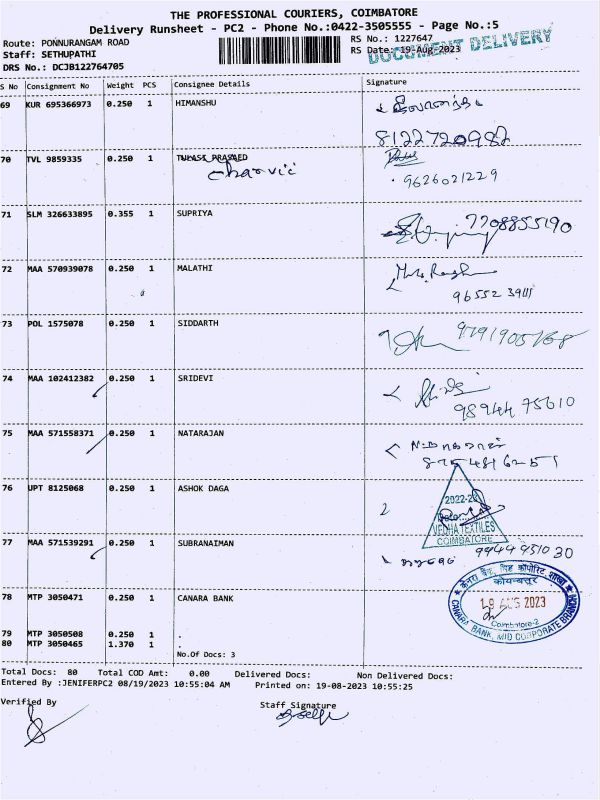 THE PROFESSIONAL COURIERS, COIMBATORE
Delivery Runsheet - PC2 - Phone No.:0422-3505555 - Page No.:5
Route: PONNURANGAM ROAD
Staff: SETHUPATHI
DRS No.: DCJB122764705
RS No.: 1227647
RS Date: 19-Aug-2023
DOCUMENT DELIVERY
S No Consignment No Weight PCS Consignee Details Signature
69 KUR 695366973 0.250 1 HIMANSHU
8122720982
70 TVL 9859335 0.250 1 TULASI PRASAED
Charvic
9626021229
71 SLM 326633895 0.355 1 SUPRIYA
7708855190
72 MAA 570939078 0.250 1 MALATHI
73 POL 1575078 0.250 1 SIDDARTH
74 MAA 102412382 0.250 1 SRIDEVI
98944 75610
75 MAA 571558371 0.250 1 NATARAJAN
76 UPT 8125068 0.250 1 ASHOK DAGA
VEDHA TEXTILES
COIMBATORE
77 MAA 571539291 0.250 1 SUBRANAIMAN
99449 451030
78 MTP 3050471 0.250 1 CANARA BANK
केनरा बैंक, मिड कॉर्पोरेट शाखा
कोयम्बत्तूर
19 AUG 2023
Coimbatore-2
CANARA BANK, MID CORPORATE BRANCH
79 MTP 3050508 0.250 1 .
80 MTP 3050465 1.370 1 .
No.Of Docs: 3
Total Docs: 80 Total COD Amt: 0.00 Delivered Docs: Non Delivered Docs:
Entered By :JENIFERPC2 08/19/2023 10:55:04 AM Printed on: 19-08-2023 10:55:25
Verified By
Staff Signature